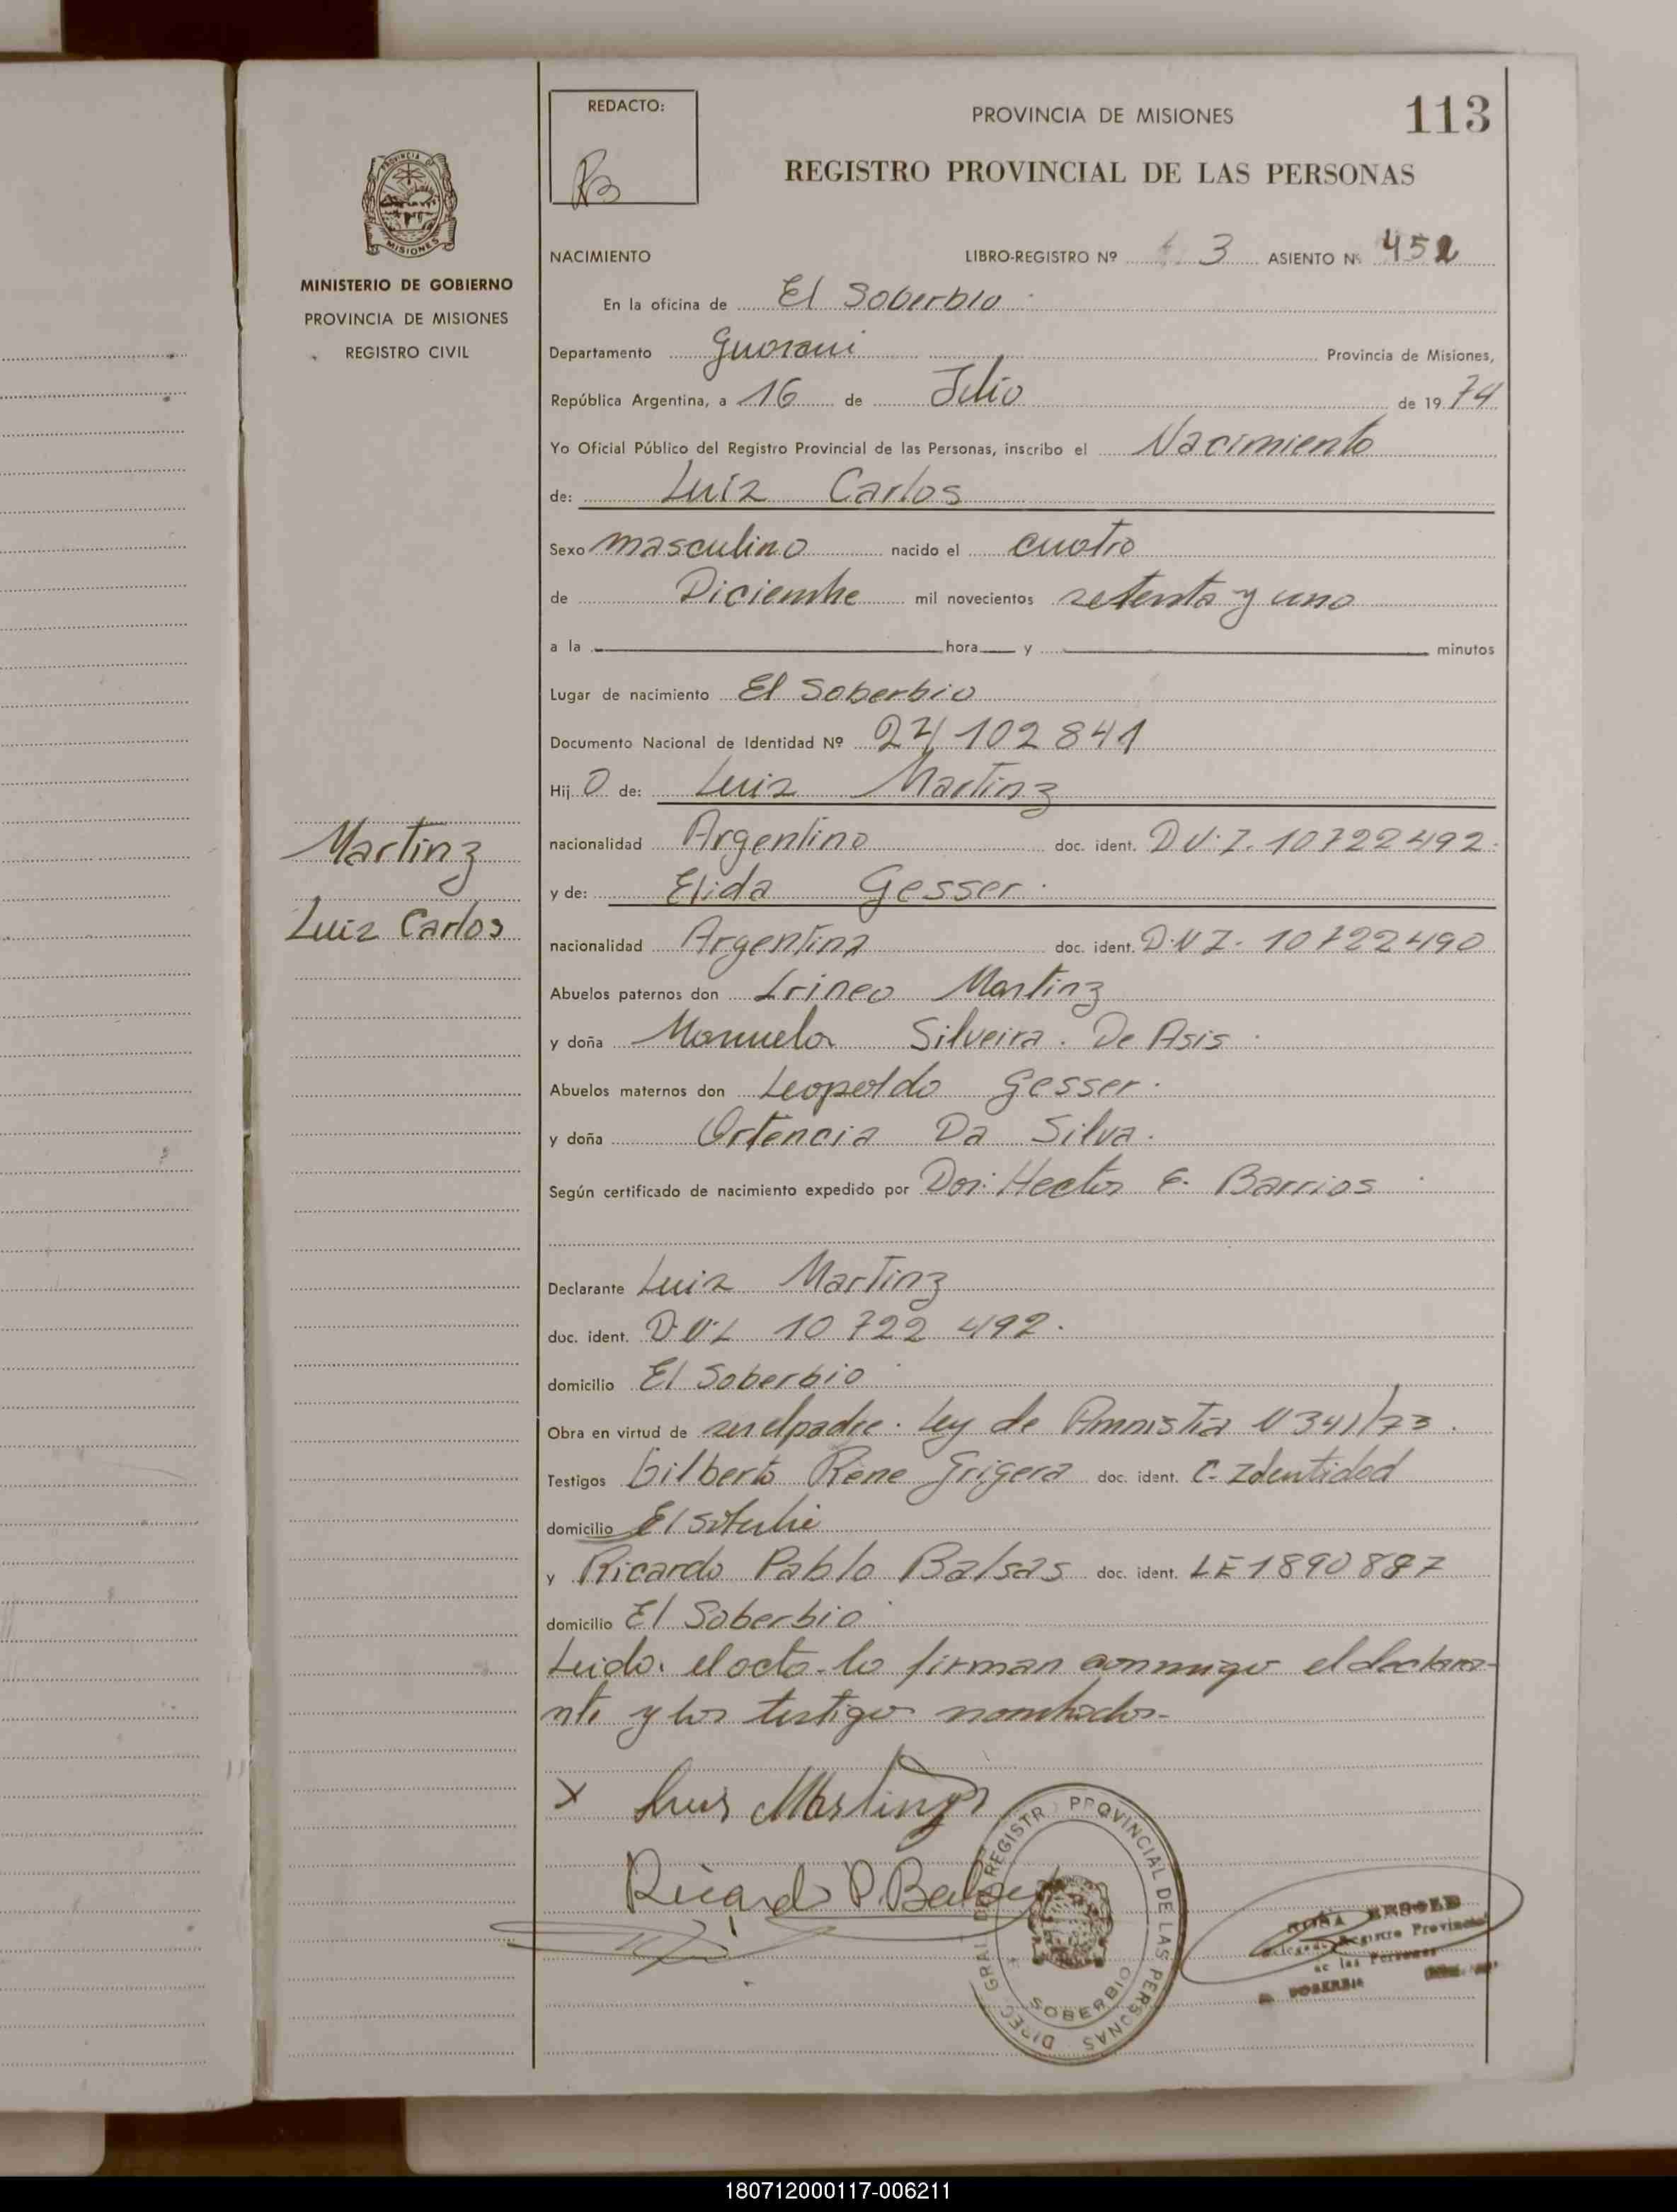 REDACTO:
PROVINCIA DE MISIONES
113
REGISTRO PROVINCIAL DE LAS PERSONAS
PROVINCIA DE
MISIONES
MINISTERIO DE GOBIERNO
PROVINCIA DE MISIONES
REGISTRO CIVIL
NACIMIENTO LIBRO-REGISTRO Nº 3 ASIENTO Nº 452
En la oficina de El Soberbio
Departamento Guarani Provincia de Misiones,
República Argentina, a 16 de Julio de 1974
Yo Oficial Público del Registro Provincial de las Personas, inscribo el Nacimiento
de: Luiz Carlos
Sexo masculino nacido el cuatro
de Diciembre mil novecientos setenta y uno
a la hora y minutos
Lugar de nacimiento El Soberbio
Documento Nacional de Identidad Nº 24 102 841
Hijo de: Luiz Martinz
nacionalidad Argentino doc. ident. D.N.I. 10722492
y de: Elida Gesser
nacionalidad Argentina doc. ident. D.N.I. 10722490
Martinz
Luiz Carlos
Abuelos paternos don Irineo Martinz
y doña Manuela Silveira De Asis
Abuelos maternos don Leopoldo Gesser
y doña Ortencia Da Silva
Según certificado de nacimiento expedido por Don: Hector E. Barrios
Declarante Luiz Martinz
doc. ident. D.N.I. 10 722 492
domicilio El Soberbio
Obra en virtud de ser el padre. Ley de Amnistia N 341/73.
Testigos Gilberto Rene Grigera doc. ident. C. Identidad
domicilio El Soberbio
y Ricardo Pablo Balsas doc. ident. LE 1890887
domicilio El Soberbio
Leido el acto lo firman conmigo el declara-
nte y los testigos nombrados-
X Luis Martinz
Ricardo P. Balsas
DIREC. GRAL. DEL REGISTRO PROVINCIAL DE LAS PERSONAS
SOBERBIO
Registro Provincial
de las Personas
SOBERBIO
180712000117-006211